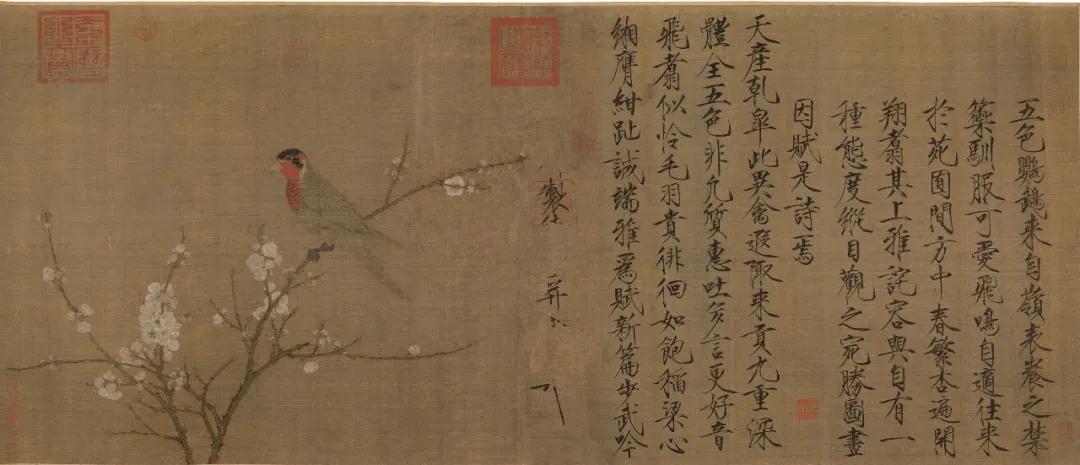 五色鸚鵡來自嶺表養之禁
籞馴服可愛飛鳴自適往來
於苑囿間方中春繁杏遍開
翔翥其上雅詫容與自有一
種態度縱目觀之宛勝圖畫
因賦是詩焉
天產乾皐此異禽遐陬來貢九重深
體全五色非凡質惠吐多言更好音
飛翥似怜毛羽貴徘徊如飽稻粱心
緗膺紺趾誠端雅爲賦新篇步武吟
製